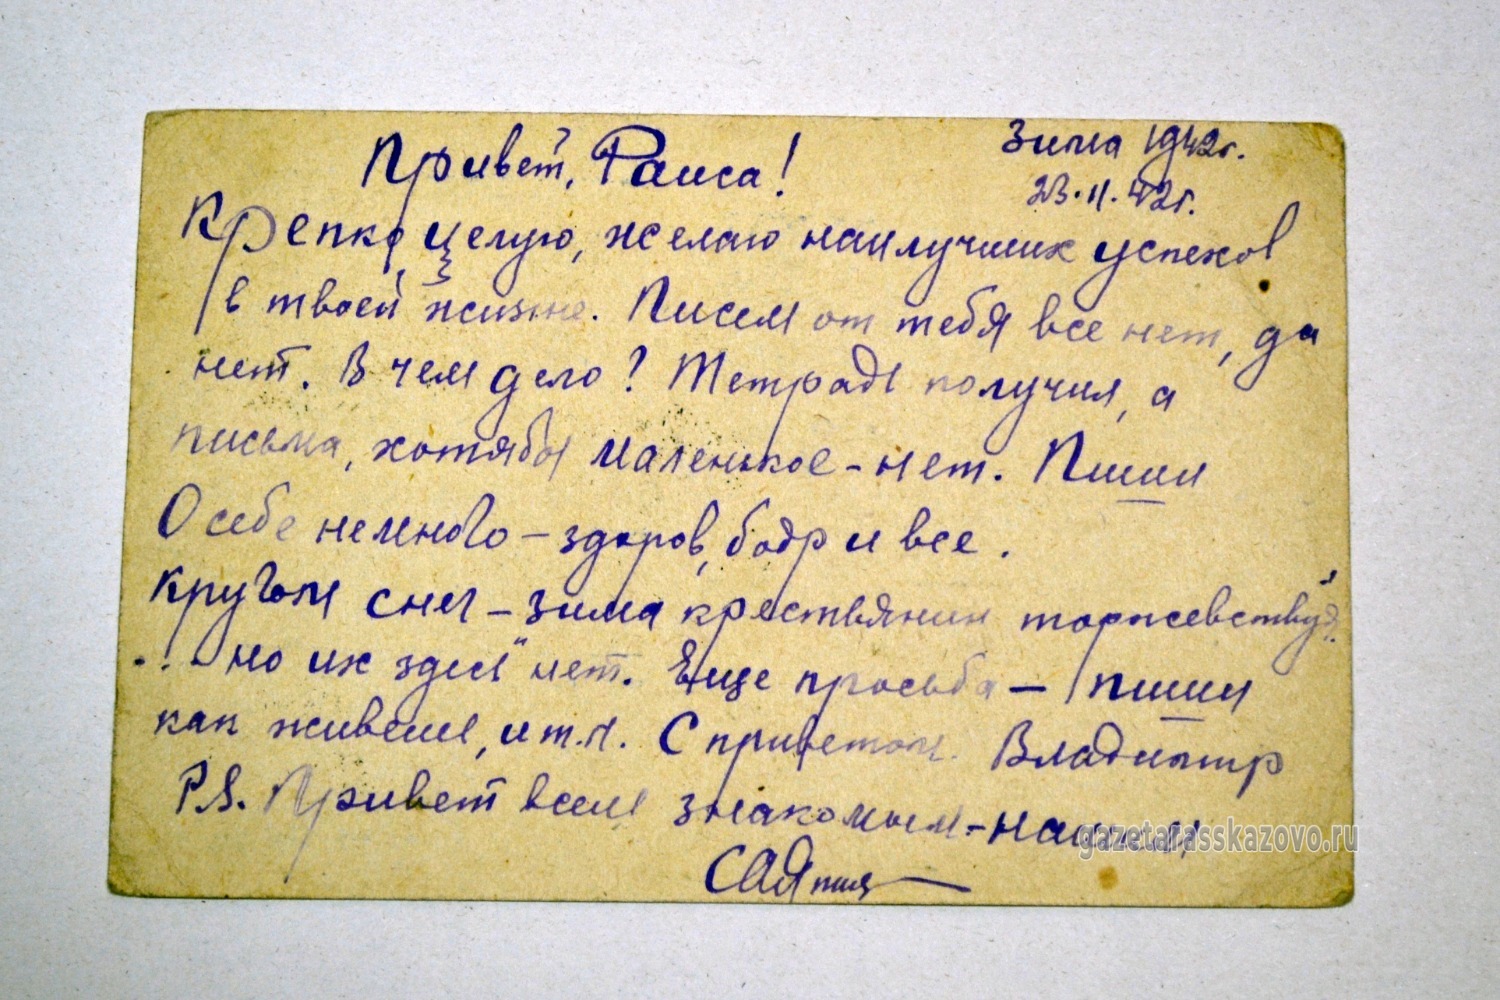 Зима 1942г.
23.11.42г.
Привет, Раиса!
Крепко целую, желаю наилучших успехов
в твоей жизне. Писем от тебя все нет, да
нет. В чем дело? Тетрадь получил, а
письма, хотябы маленькое - нет. Пиши
О себе немного - здоров, бодр и все.
Кругом снег - зима крестьянин торжевствуя
... но их здесь нет. Еще просьба - пиши
как живеш, и т.п. С приветом. Владимир
P.S. Привет всем знакомым - нашим
gazetarasskazovo.ru